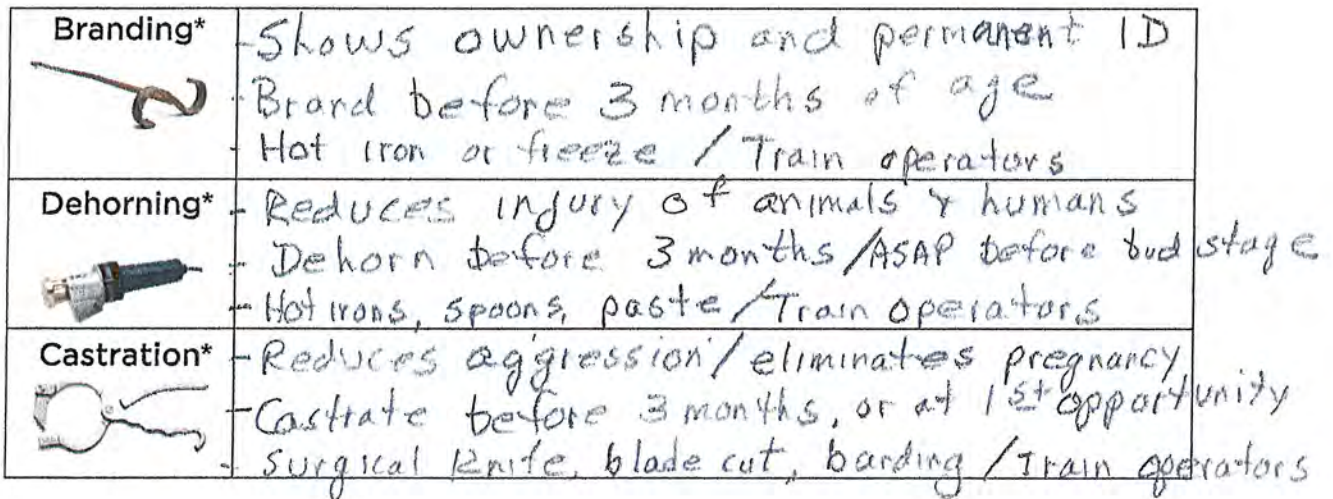 Branding*
- Shows ownership and permanent ID
- Brand before 3 months of age
- Hot iron or freeze / Train operators
Dehorning*
- Reduces injury of animals & humans
- Dehorn before 3 months / ASAP before bud stage
- Hot irons, spoons, paste / Train operators
Castration*
- Reduces aggression / eliminates pregnancy
- Castrate before 3 months, or at 1st opportunity
- Surgical knife, blade cut, barding / Train operators